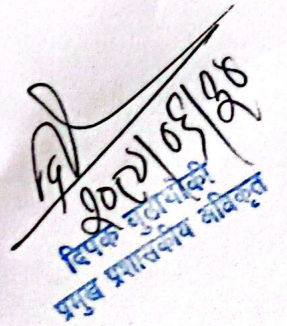 २०८१/०६/३०
दिपक बुढाथोकी
प्रमुख प्रशासकीय अधिकृत